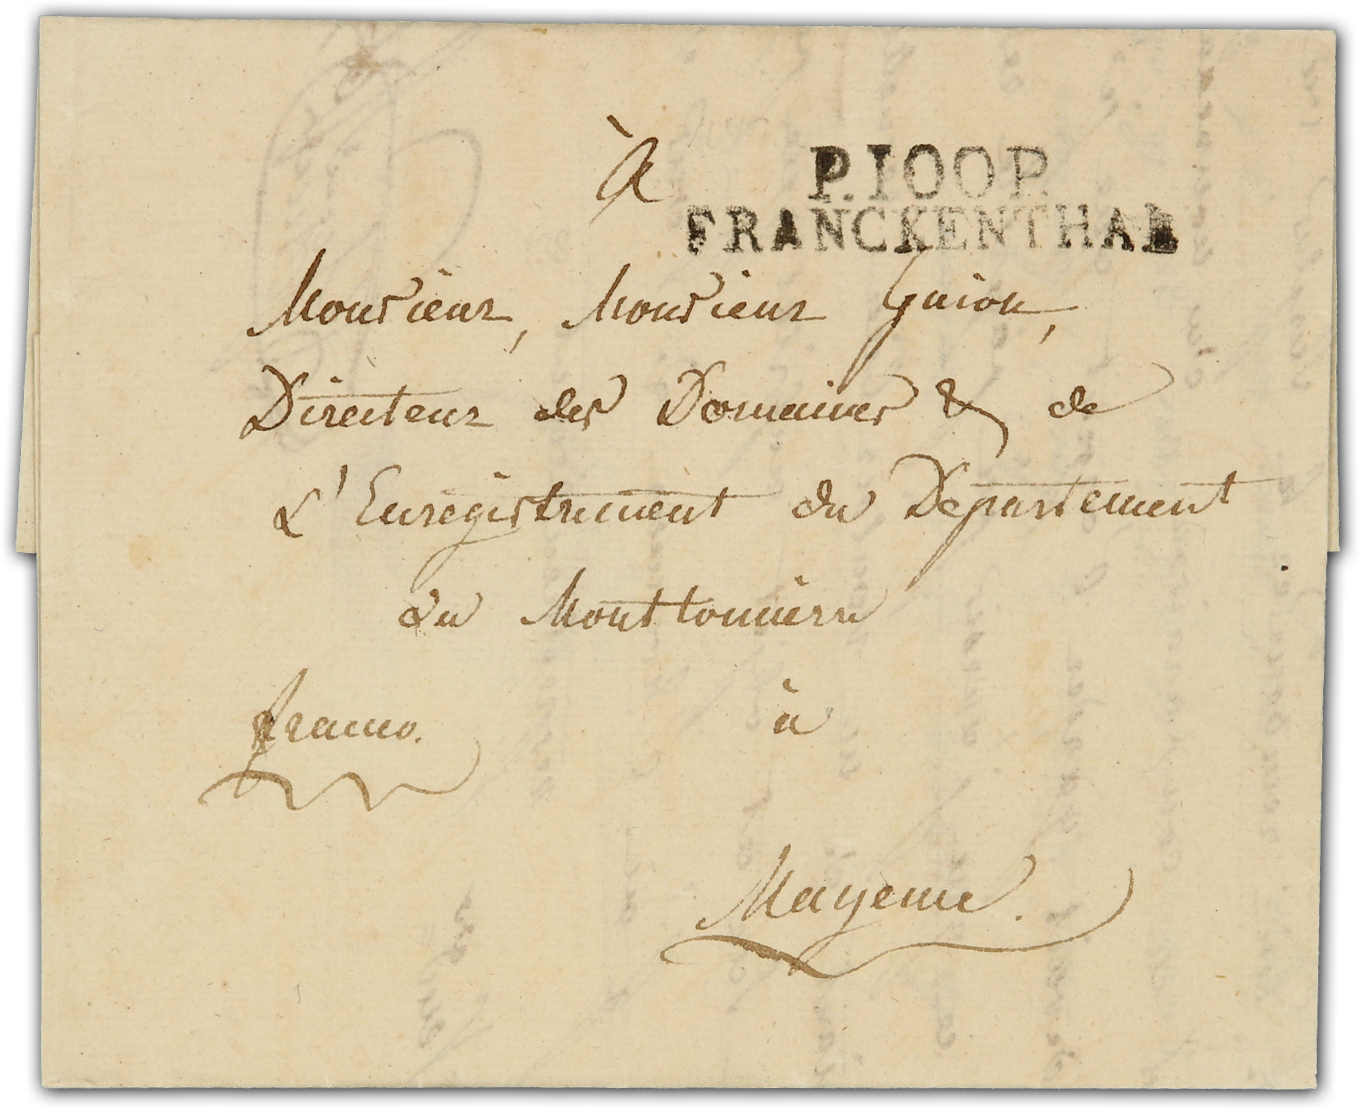 à
P.100P.
FRANCKENTHAL
Monsieur, Monsieur Guion,
Directeur des Domaines & de
L'Enregistrement du Département
du Monttonnerre
franco.
à
Mayence.